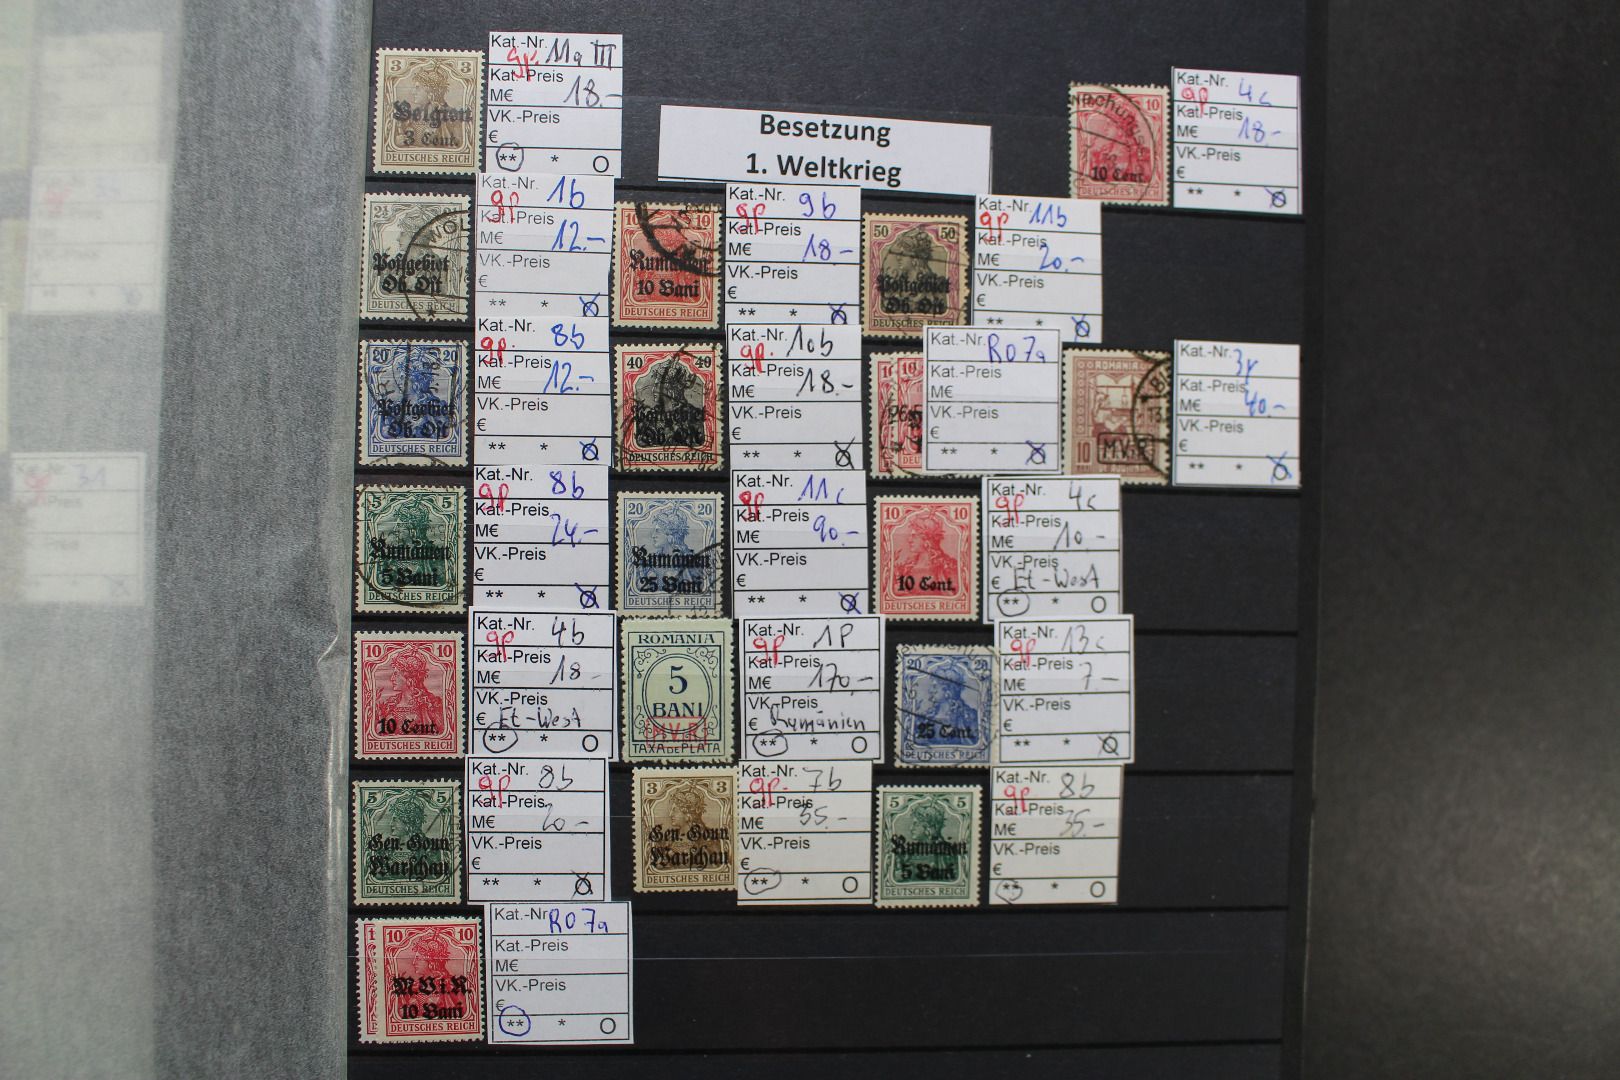 3 3
Belgien
3 Cent.
DEUTSCHES REICH
Kat.-Nr. 11a III
gp.
Kat.-Preis
M€ 18.-
VK.-Preis
€
** * O
Besetzung
1. Weltkrieg
10
10 Cent.
DEUTSCHES REICH
Kat.-Nr. 4c
gp
Kat.-Preis
M€ 18.-
VK.-Preis
€
** * O
2½ 2½
WOL
Postgebiet
Ob. Ost
DEUTSCHES REICH
Kat.-Nr. 1b
gp
Kat.-Preis
M€ 12.-
VK.-Preis
€
** * O
10 10
Rumänien
10 Bani
DEUTSCHES REICH
Kat.-Nr. 9b
gp
Kat.-Preis
M€ 18-
VK.-Preis
€
** * O
50 50
Postgebiet
Ob. Ost
DEUTSCHES REICH
Kat.-Nr. 11b
gp
Kat.-Preis
M€ 20.-
VK.-Preis
€
** * O
20 20
Postgebiet
Ob. Ost
DEUTSCHES REICH
Kat.-Nr. 8b
gp.
Kat.-Preis
M€ 12.-
VK.-Preis
€
** * O
40 40
Postgebiet
Ob. Ost
DEUTSCHES REICH
Kat.-Nr. 10b
gp.
Kat.-Preis
M€ 18.-
VK.-Preis
€
** * O
10
Kat.-Nr. RO 7a
Kat.-Preis
M€
VK.-Preis
€
** * O
ROMANIA
10 M.V.i.R.
Kat.-Nr. 3y
Kat.-Preis
M€ 40.-
VK.-Preis
€
** * O
5 5
Rumänien
5 Bani
DEUTSCHES REICH
Kat.-Nr. 8b
gp
Kat.-Preis
M€ 24.-
VK.-Preis
€
** * O
20 20
Rumänien
25 Bani
DEUTSCHES REICH
Kat.-Nr. 11c
gp
Kat.-Preis
M€ 90.-
VK.-Preis
€
** * O
10 10
10 Cent.
DEUTSCHES REICH
Kat.-Nr. 4c
gp
Kat.-Preis
M€ 10.-
VK.-Preis
€ Et-West
** * O
10 10
10 Cent.
DEUTSCHES REICH
Kat.-Nr. 4b
gp
Kat.-Preis
M€ 18-
VK.-Preis
€ Et-West
** * O
ROMANIA
5
BANI
M.V.i.R.
TAXA DE PLATA
Kat.-Nr. 1P
gp
Kat.-Preis
M€ 170,-
VK.-Preis
€ Rumänien
** * O
20 20
25 Cent.
DEUTSCHES REICH
Kat.-Nr. 13c
gp
Kat.-Preis
M€ 7-
VK.-Preis
€
** * O
5 5
Gen.-Gouv.
Warschau
DEUTSCHES REICH
Kat.-Nr. 8b
gp
Kat.-Preis
M€ 20.-
VK.-Preis
€
** * O
3 3
Gen.-Gouv.
Warschau
DEUTSCHES REICH
Kat.-Nr. 7b
gp.
Kat.-Preis
M€ 35.-
VK.-Preis
€
** * O
5 5
Rumänien
5 Bani
DEUTSCHES REICH
Kat.-Nr. 8b
gp.
Kat.-Preis
M€ 35.-
VK.-Preis
€
** * O
10 10
M.V.i.R.
10 Bani
DEUTSCHES REICH
Kat.-Nr. RO 7a
Kat.-Preis
M€
VK.-Preis
€
** * O